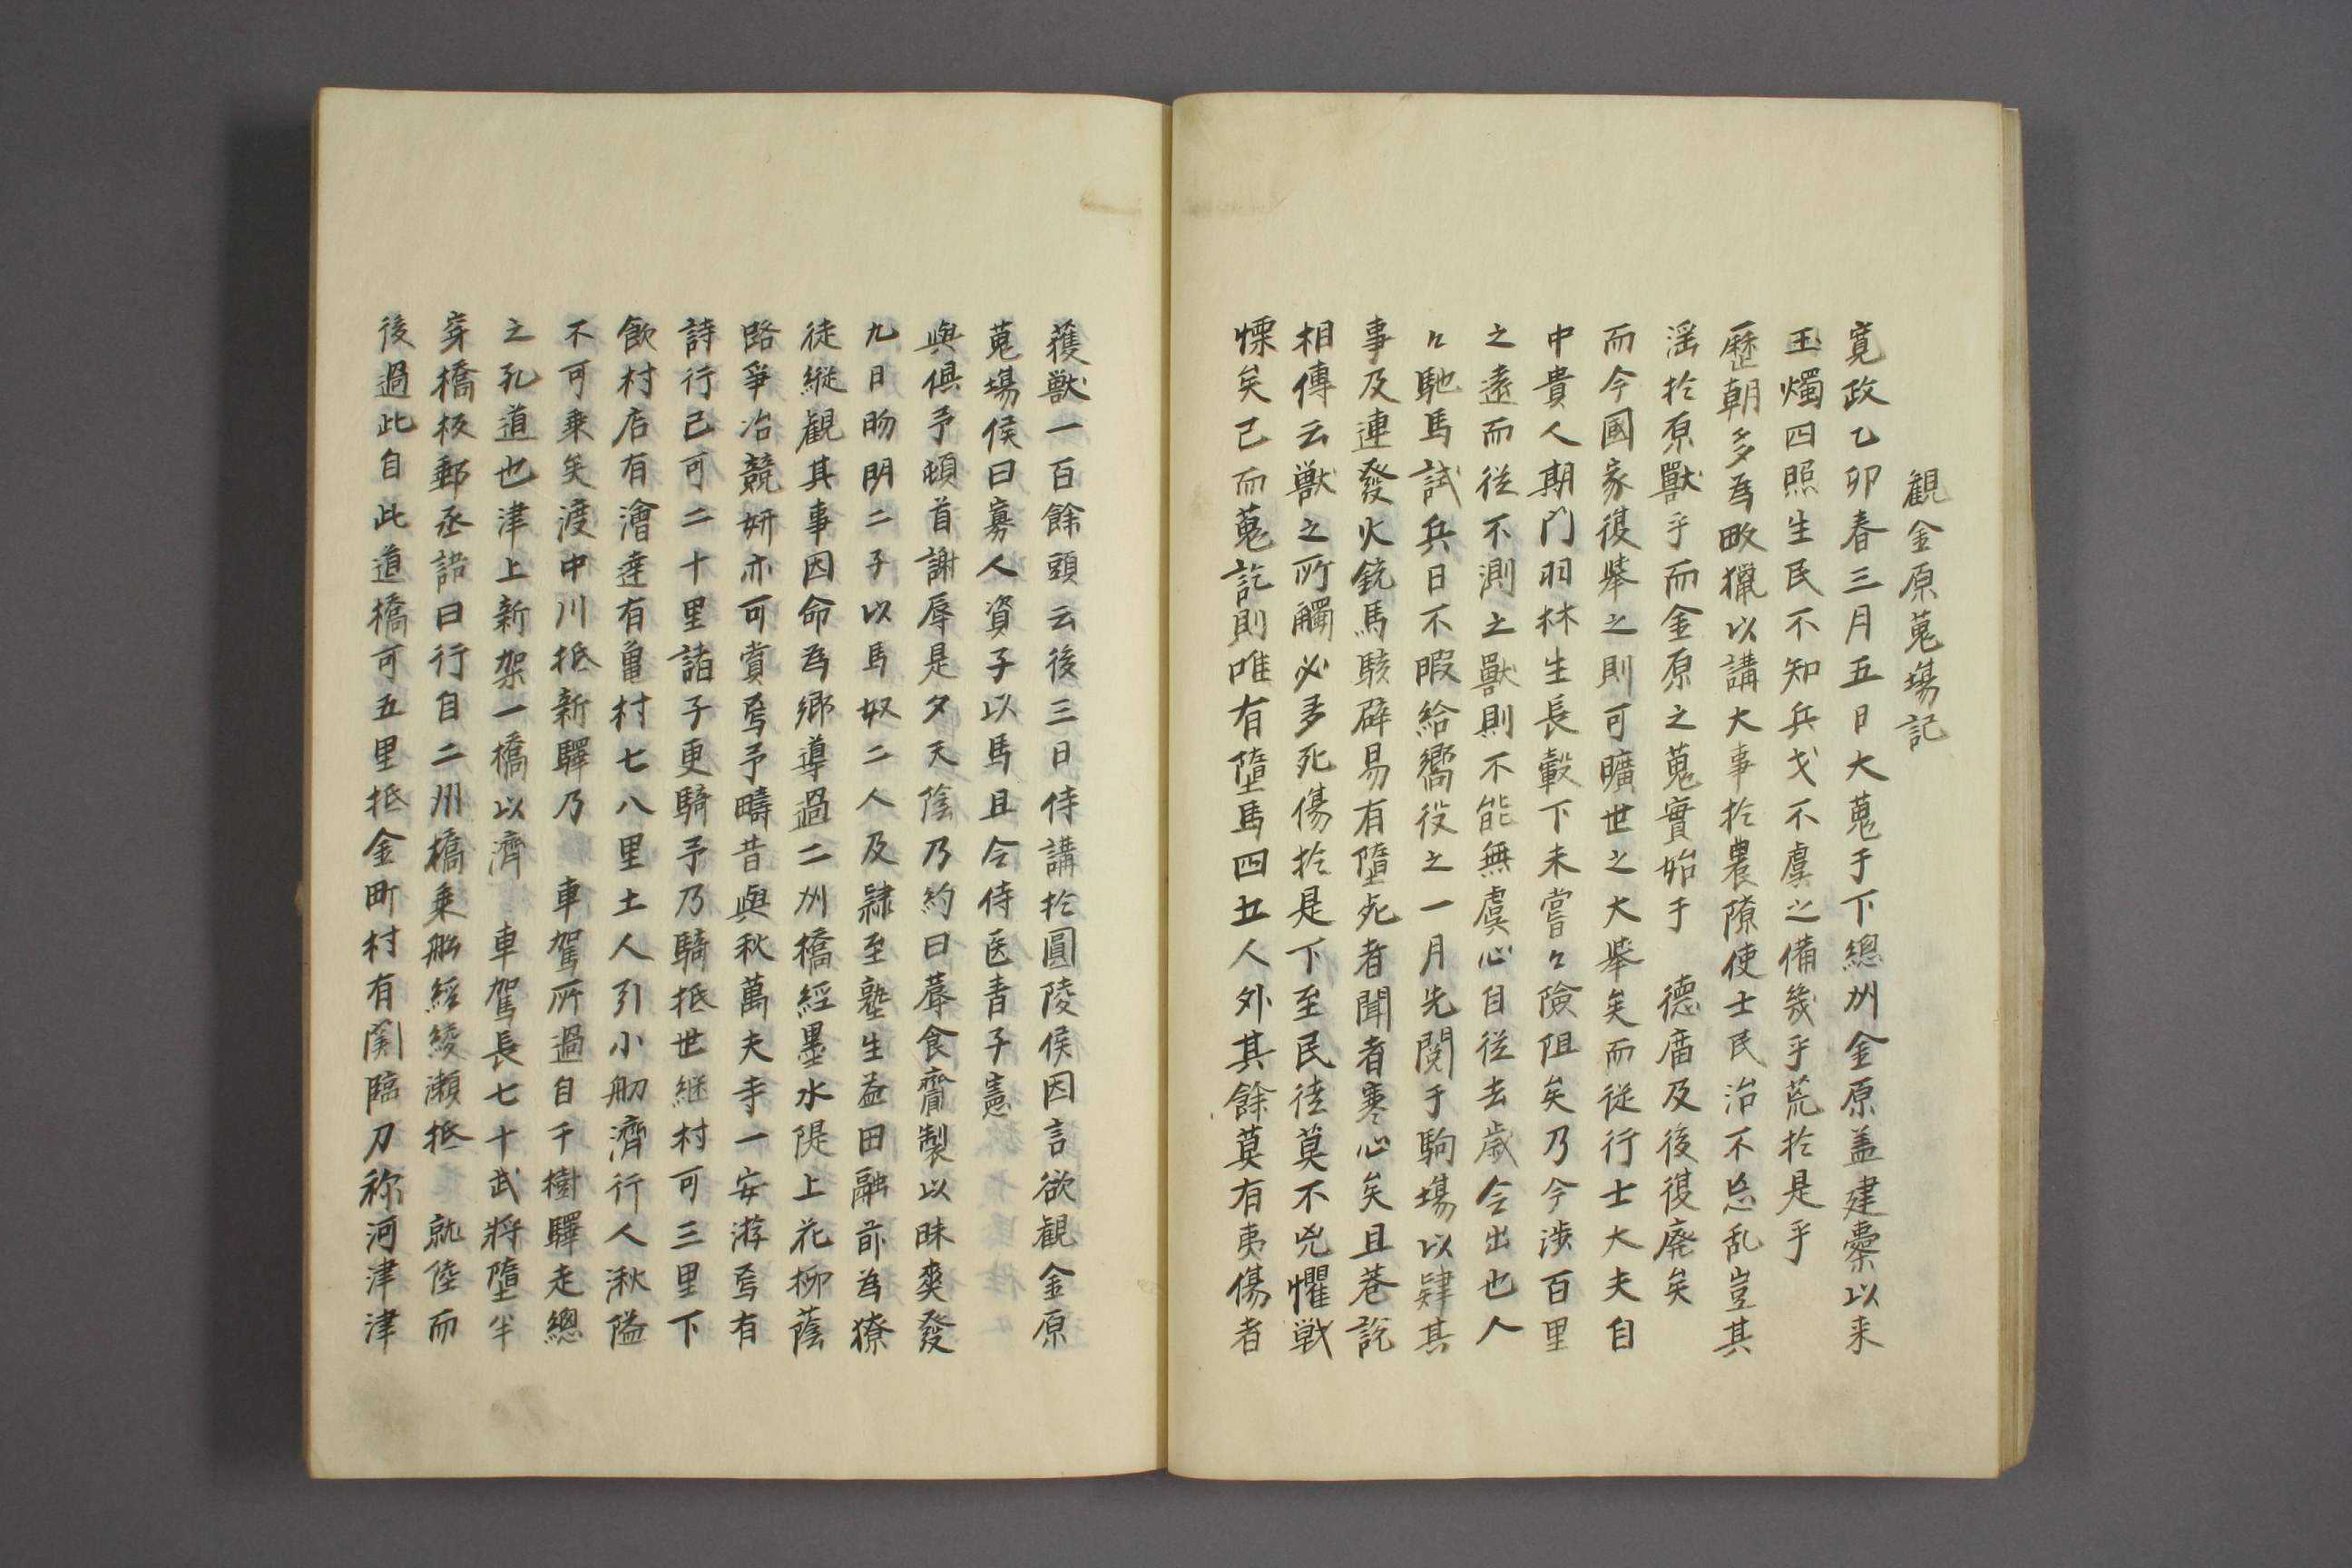 觀金原蒐場記
寛政乙卯春三月五日大蒐于下總州金原盖建櫜以来
玉燭四照生民不知兵戈不虞之備幾乎荒於是乎
歴朝多為畋獵以講大事於農隙使士民治不忘乱豈其
滛於原獸乎而金原之蒐實始于　德庿及後復廃矣
而今國家復擧之則可曠世之大擧矣而従行士大夫自
中貴人期門羽林生長轂下未嘗々險阻矣乃今渉百里
之遠而従不測之獸則不能無虞心自従去歳令出也人
々馳馬試兵日不暇給嚮役之一月先閲于駒場以肄其
事及連發火銃馬駭辟易有墮死者聞者寒心矣且巷説
相傳云獣之所觸必多死傷於是下至民徒莫不兇懼戦
慄矣已而蒐訖則唯有墮馬四五人外其餘莫有夷傷者
獲獣一百餘頭云後三日侍講於圓陵侯因言欲観金原
蒐場侯曰寡人資子以馬且令侍医青子憲
與俱予頓首謝辱是夕天陰乃約曰蓐食齎製以昧爽發
九日昒明二子以馬奴二人及隷至塾生益田融前為獠
徒縦觀其事因命為郷導過二州橋經墨水隄上花柳蔭
路爭冶競妍亦可賞焉予疇昔與秋萬夫寺一安游焉有
詩行已可二十里諸子更騎予乃騎抵世継村可三里下
飲村店有澮達有亀村七八里土人引小舠濟行人湫隘
不可乗矣渡中川抵新驛乃　車駕所過自千樹驛走總
之孔道也津上新架一橋以濟　車駕長七十武将墮半
穿橋板郵丞語曰行自二州橋乗船經綾瀬抵　就陸而
後過此自此道橋可五里抵金町村有関臨刀祢河津津